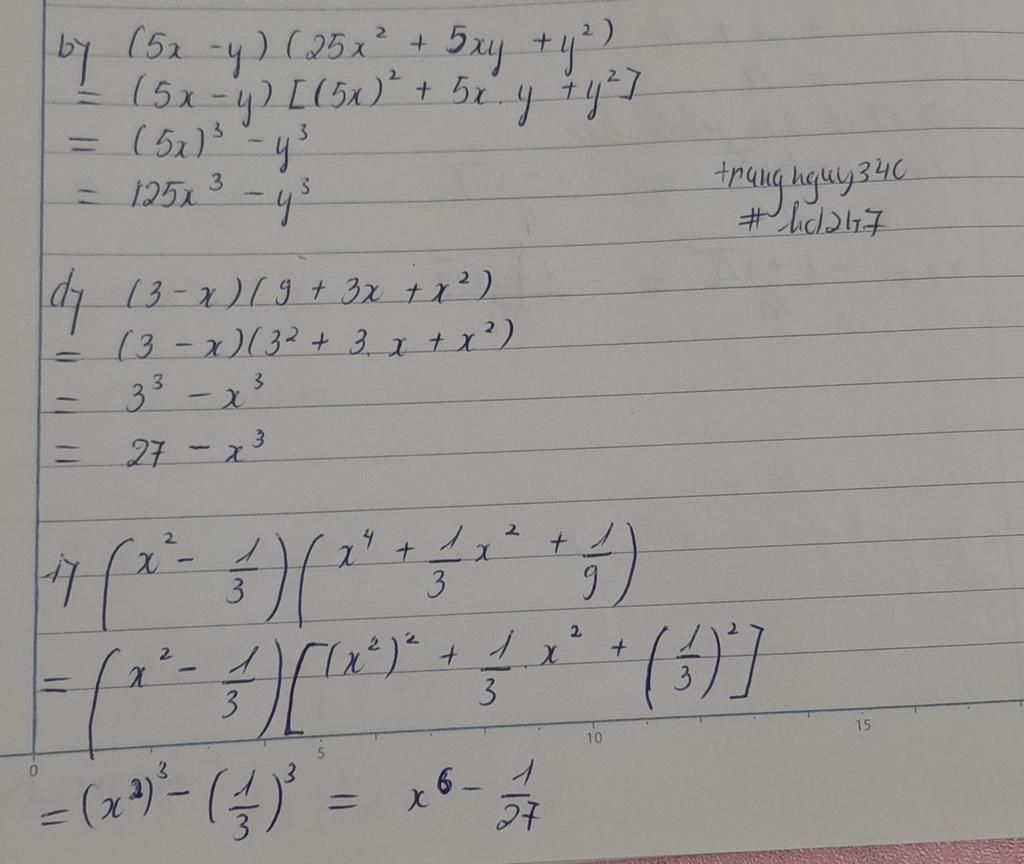 b) (5x - y)(25x² + 5xy + y²)
= (5x - y)[(5x)² + 5x.y + y²]
= (5x)³ - y³
= 125x³ - y³
trangnguy34c
# hd247
d) (3 - x)(9 + 3x + x²)
= (3 - x)(3² + 3.x + x²)
= 3³ - x³
= 27 - x³
i) (x² - 1/3)(x⁴ + 1/3 x² + 1/9)
= (x² - 1/3)[(x²)² + 1/3.x² + (1/3)²]
0 5 10 15
= (x²)³ - (1/3)³ = x⁶ - 1/27